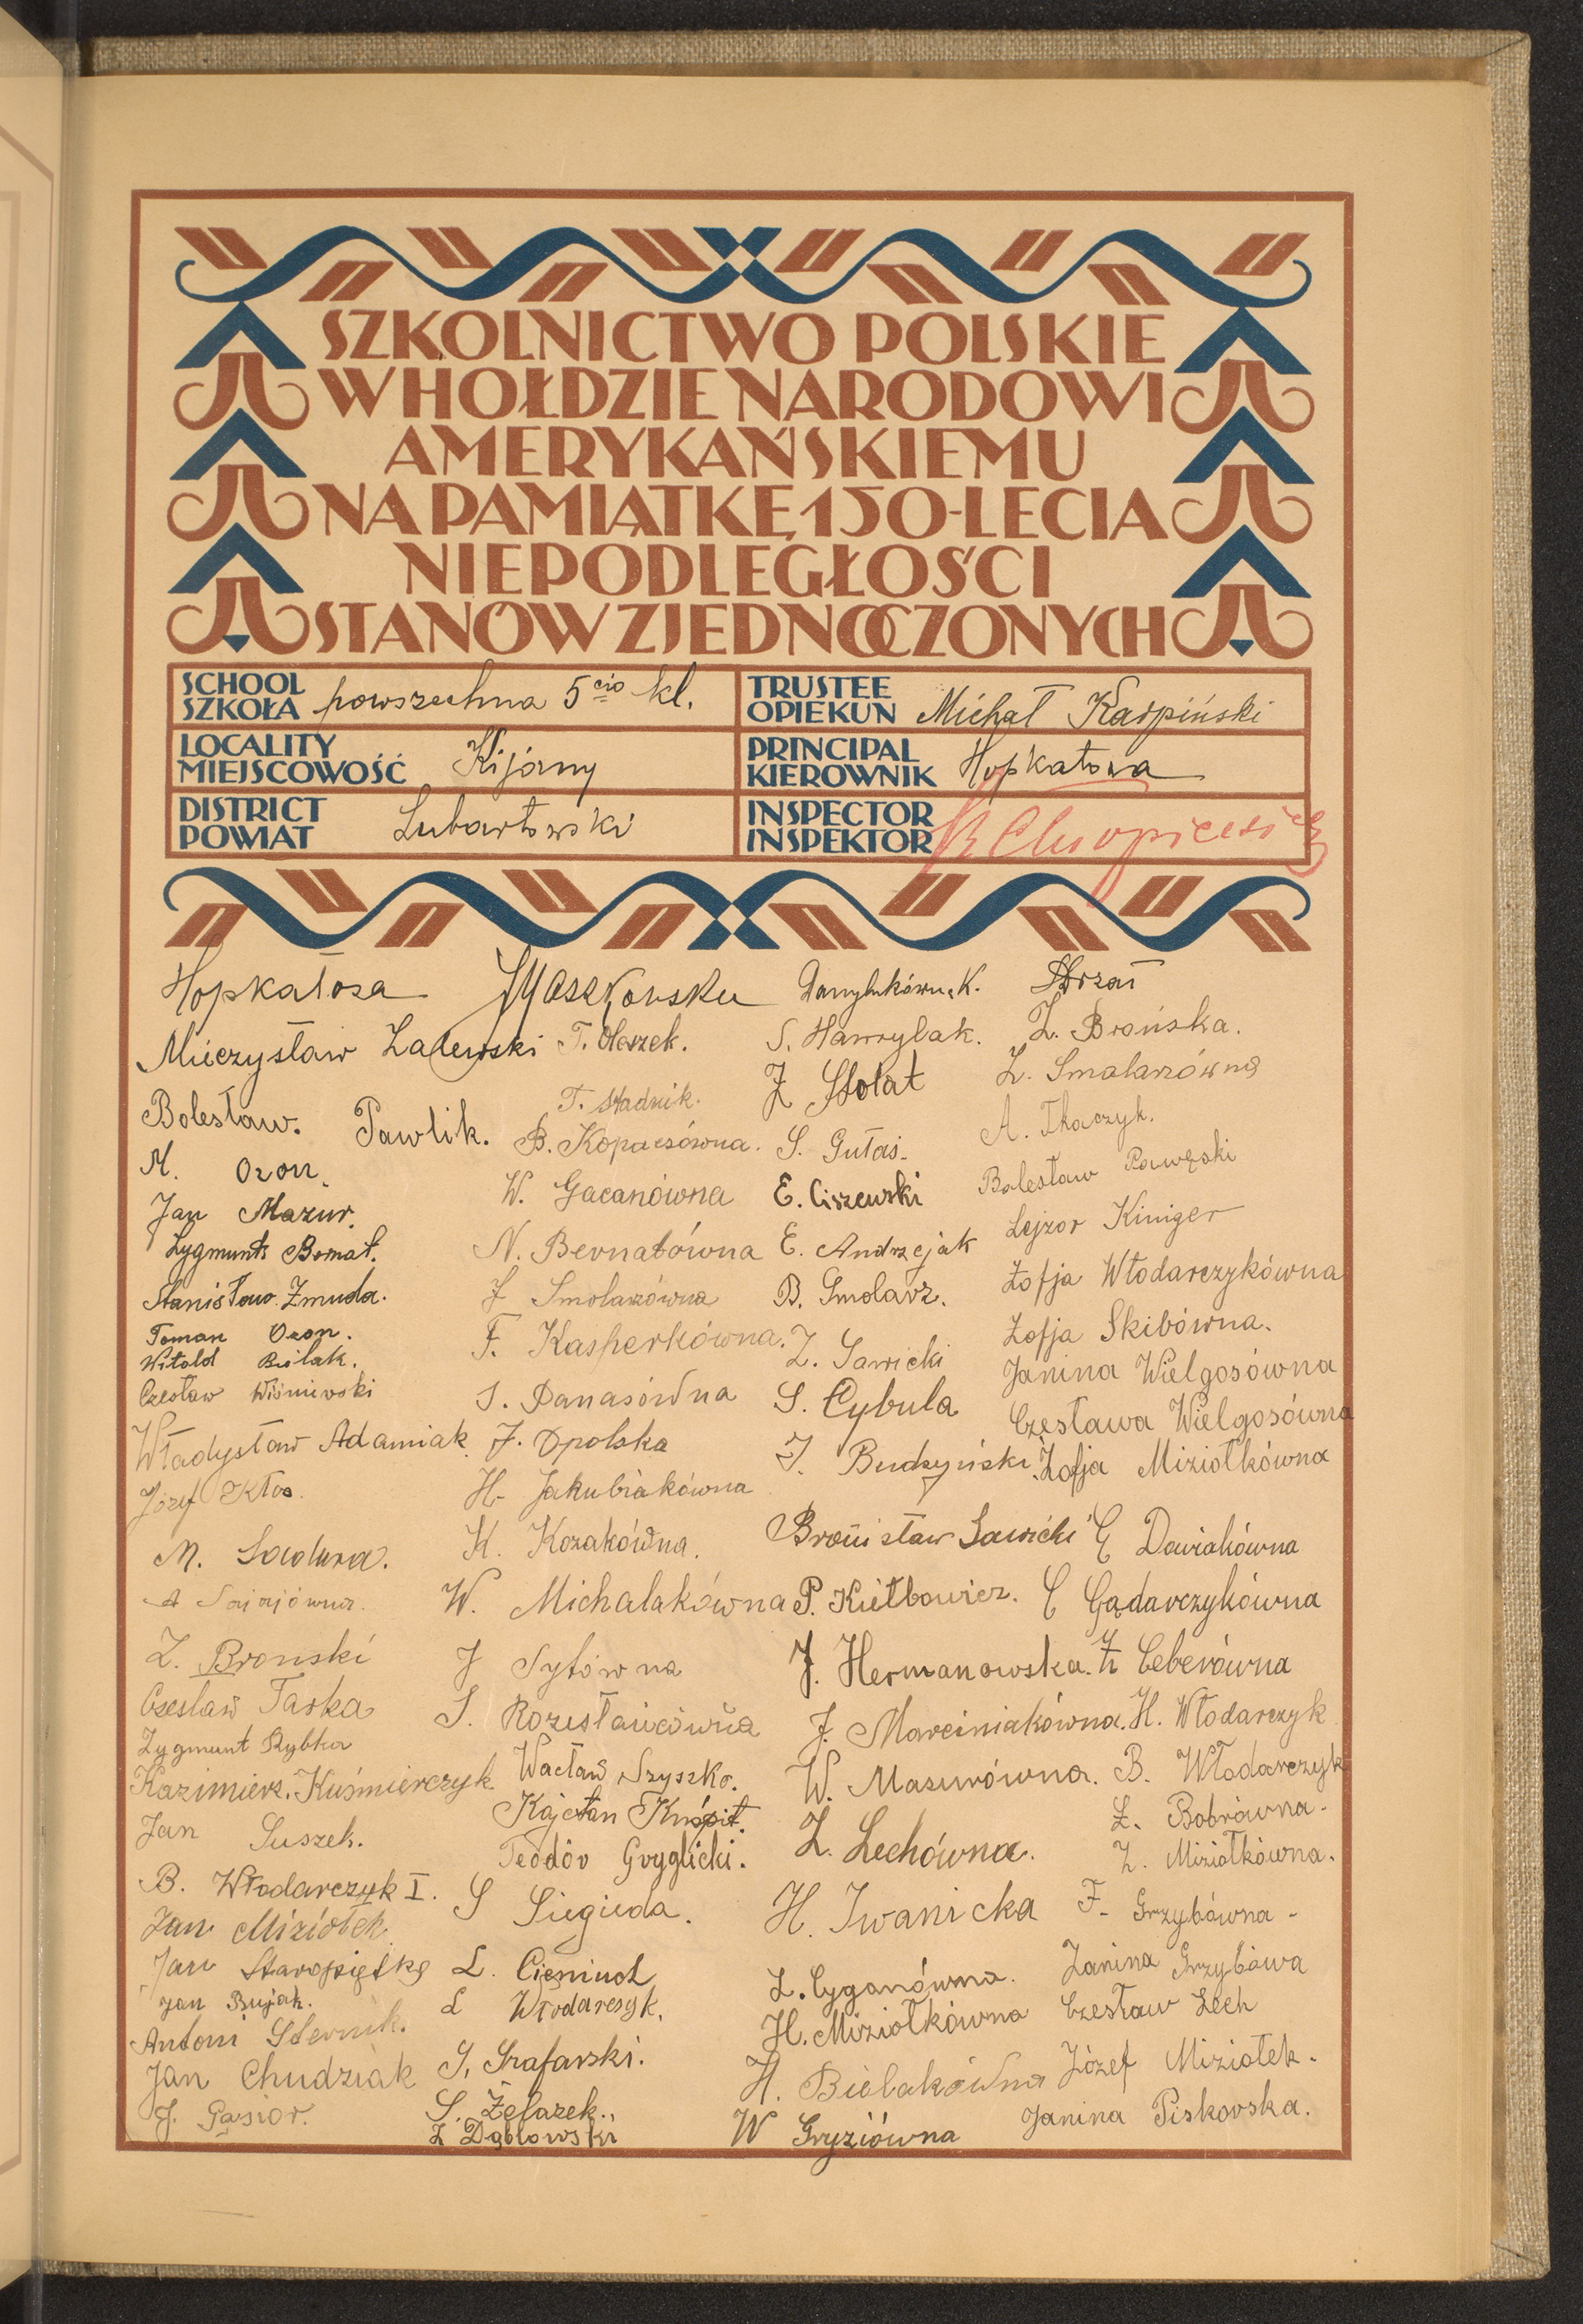 SZKOLNICTWO POLSKIE
W HOŁDZIE NARODOWI
AMERYKAŃSKIEMU
NA PAMIĄTKĘ 150-LECIA
NIEPODLEGŁOŚCI
STANÓW ZJEDNOCZONYCH
SCHOOL
SZKOŁA powszechna 5cio kl.
TRUSTEE
OPIEKUN Michał Karpiński
LOCALITY
MIEJSCOWOŚĆ Kijany
PRINCIPAL
KIEROWNIK Hopkałowa
DISTRICT
POWIAT Lubartowski
INSPECTOR
INSPEKTOR
Hopkałowa
Mieczysław Zalewski
Bolesław. Pawlik.
M. Ozon.
Jan Mazur.
Zygmunt
Stanisław Żmuda.
Roman Ozon.
Witold Bielak.
Czesław Wiśniewski
Władysław Adamiak
Józef Kłos.
M. Sadura.
Z. Bronski
Czesław Tarka
Zygmunt Rybka
Kazimierz. Kuśmierczyk
Jan Suszek.
B. Włodarczyk I.
Jan Miziołek
Jan Staropiętkę
Jan Bujak.
Antoni Sternik.
Jan Chudziak
J. Gąsior.
T. Oleszek.
T. Stadnik.
B. Kopaczówna.
W. Gacanówna
N. Bernatówna
J Smolarzówna
F. Kasperkówna.
S. Panasówna
J. Opolska
H. Jakubiakówna
K. Kozakówna.
W. Michalakówna
J Sytówna
S. Rozesłańcówna
Wacław Szyszko.
Kajetan
Teodor Gryglicki.
S Siegieda.
L. Cieniuch
L Włodarczyk.
S. Szafarski.
S. Żelazek.
Z Dąbrowski
Danylukówna K.
S. Hawrylak.
J Stolat
S. Gułaś.
E. Ciszewski
E. Andrzejak
B. Smolarz.
Z. Sawicki
S. Cybula
J. Budzyński
Bronisław Sawicki
P. Kiełbowicz.
J. Hermanowska.
J. Marciniakówna.
W. Mazurówna.
Z. Lechówna.
H. Iwanicka
Z. Cyganówna.
H. Miziołkówna
H. Bielakówna
W Gryziówna
Z. Brońska.
Z. Smalarzówną
A. Tkaczyk.
Bolesław Pawęski
Lejzor Kiniger
Zofja Włodarczykówna
Zofja Skibówna.
Janina Wielgosówna
Czesława Wielgosówna
Zofja Miziołkówna
C Dawiakówna
C Gądarczykówna
Ceberówna
H. Włodarczyk
B. Włodarczyk
Z. Bobrówna.
Z. Miziołkówna.
F. Grzybówna.
Janina Grzybówa
Czesław Lech
Józef Miziołek.
Janina Piskorska.